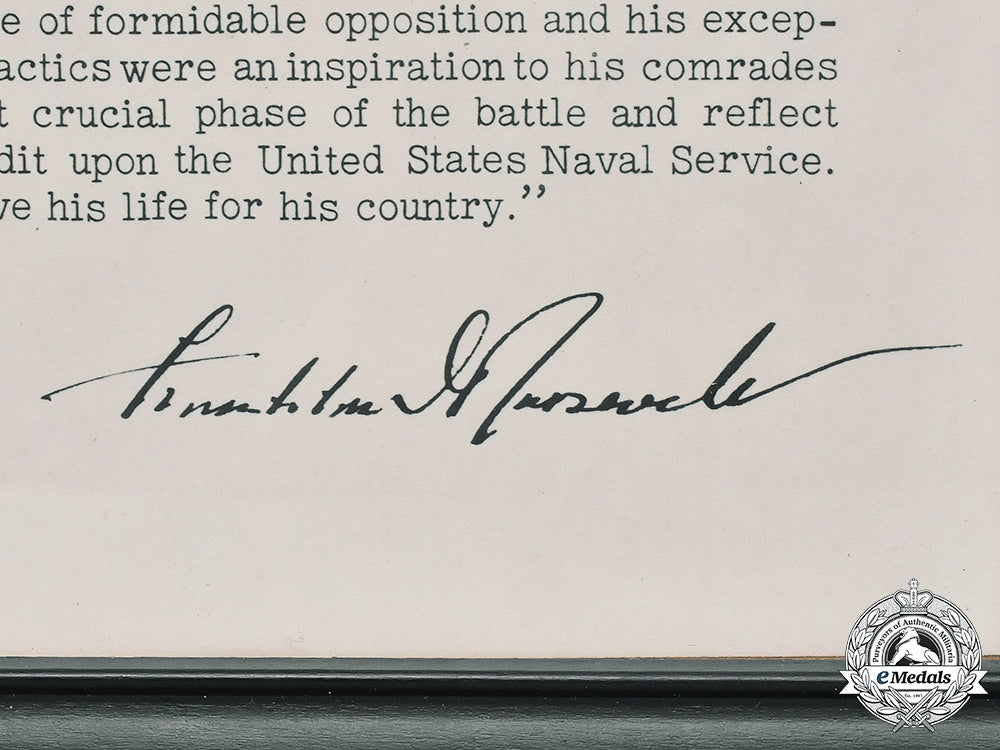 e of formidable opposition and his excep-
actics were an inspiration to his comrades
t crucial phase of the battle and reflect
dit upon the United States Naval Service.
ve his life for his country.”
Franklin D Roosevelt
Purveyors of Authentic Militaria
eMedals